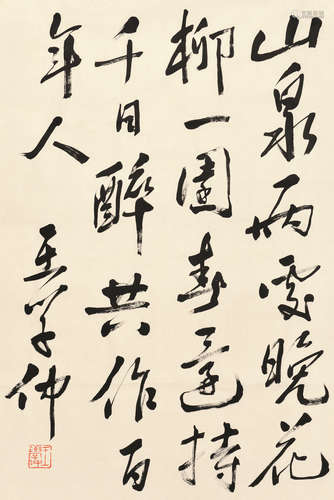 山泉两處晚花
柳一園春還持
千日醉共作百
年人
王学仲